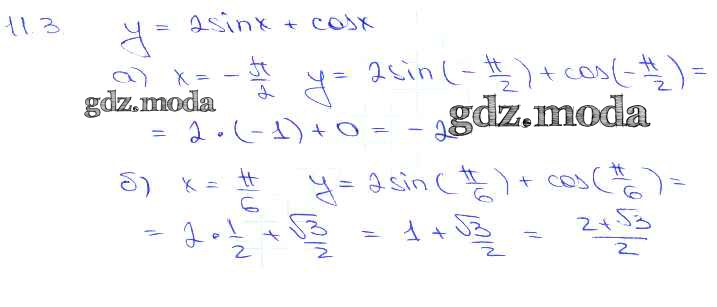 11.3 y = 2sinx + cosx
а) x = -π/2 y = 2sin(-π/2) + cos(-π/2) =
gdz.moda
= 2·(-1) + 0 = -2
gdz.moda
б) x = π/6 y = 2sin(π/6) + cos(π/6) =
= 2·1/2 + √3/2 = 1 + √3/2 = 2+√3/2